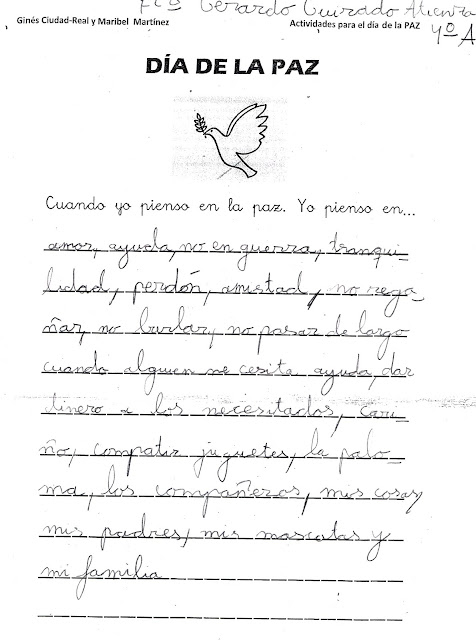 Fco Gerardo Guirado Atienza
Ginés Ciudad-Real y Maribel Martínez Actividades para el día de la PAZ 4º A
DÍA DE LA PAZ
Cuando yo pienso en la paz. Yo pienso en...
amor, ayuda, no en guerra, tranqui-
lidad, perdón, amistad, no rega-
ñar, no burlar, no pasar de largo
cuando alguien ne cesita ayuda, dar
dinero a los necesitados, cari-
ño, compatir juguetes, la palo-
ma, los compañeros, mis cosas,
mis padres, mis mascotas y
mi familia